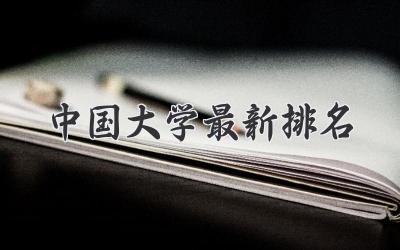 中国大学最新排名